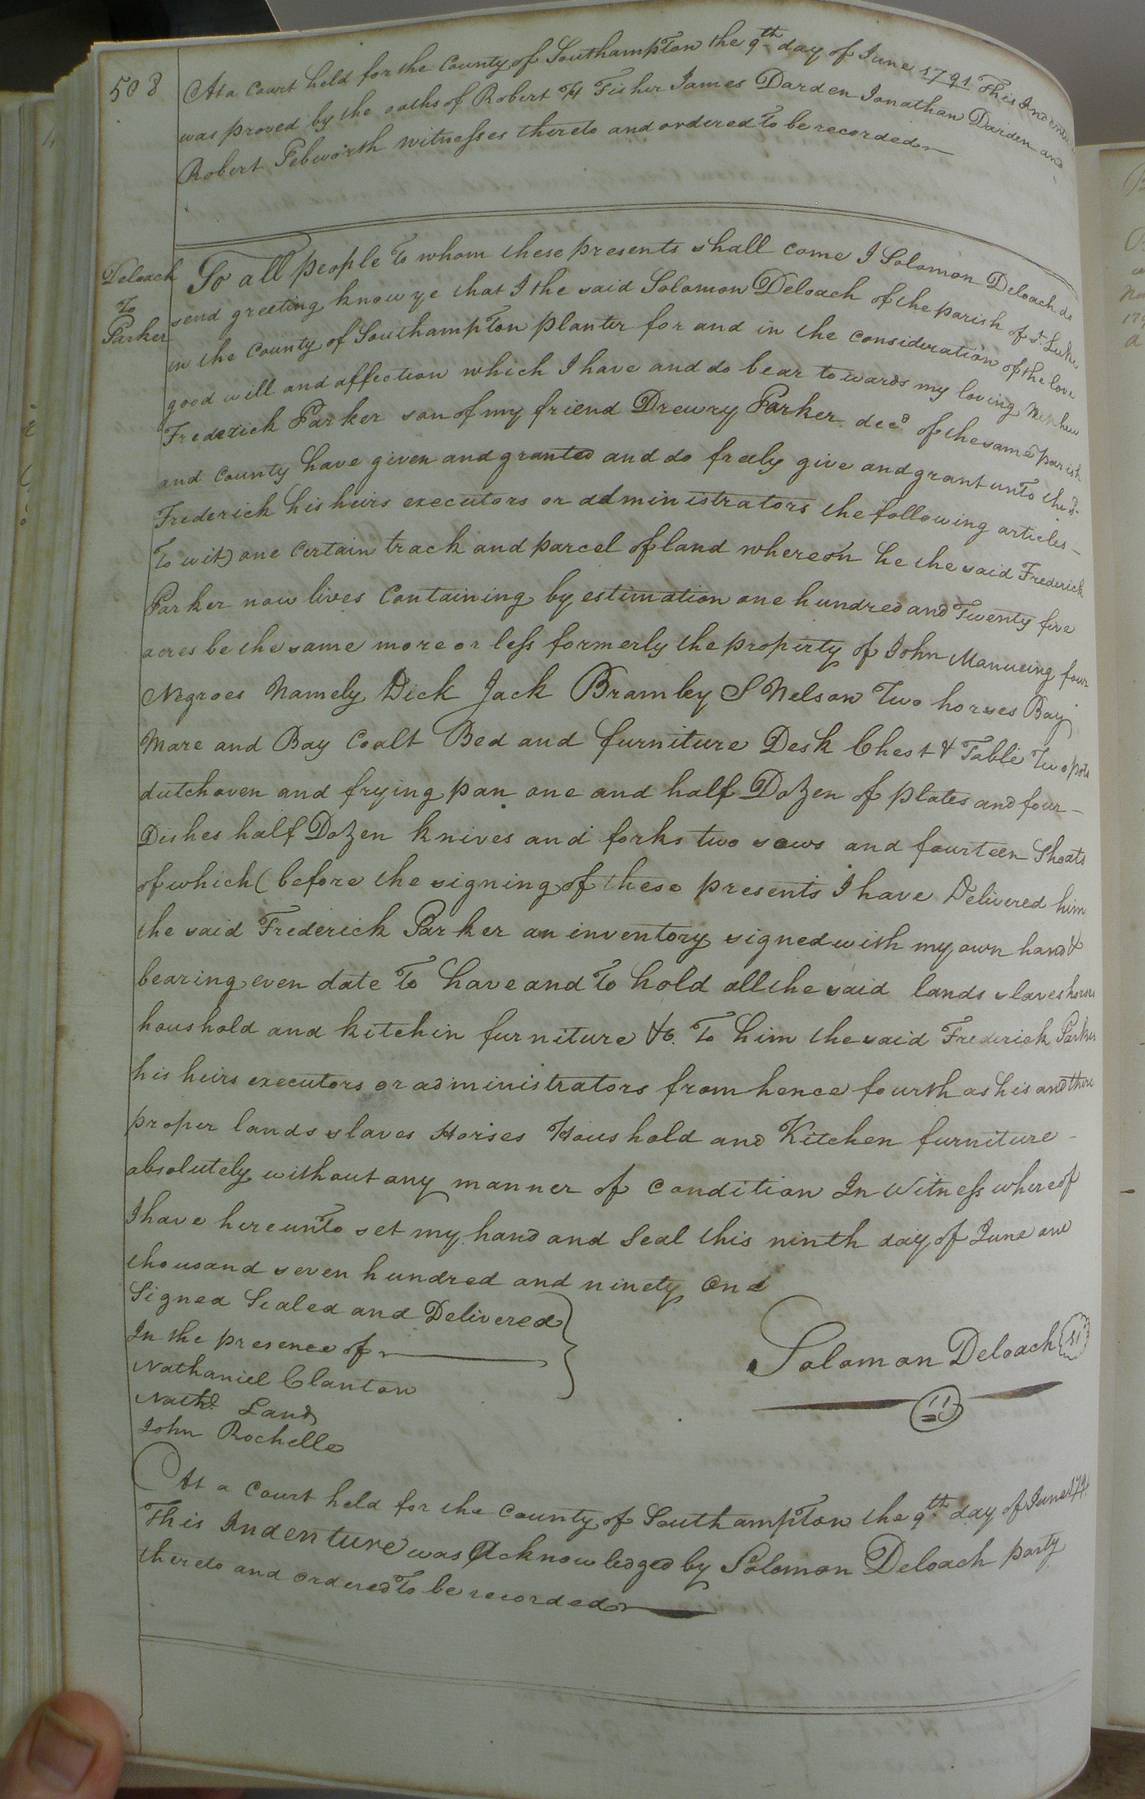 508
At a Court held for the County of Southampton the 9th day of June 1791 This Indenture
was proved by the oaths of Robert H Fisher James Darden Jonathan Darden and
Robert Pebworth witnesses thereto and ordered To be recorded
Deloach
To
Parker
To all people To whom these presents shall come I Solomon Deloach do
send greeting know ye that I the said Solomon Deloach of the parish of St. Luke
in the County of Southampton planter for and in the consideration of the love
good will and affection which I have and do bear towards my loving Nephew
Frederick Parker son of my friend Drewry Parker decd of the same parish
and County have given and granted and do freely give and grant unto the sd.
Frederick his heirs executors or administrators the following articles
To wit) one Certain track and parcel of land whereon he the said Frederick
Parker now lives Containing by estimation one hundred and Twenty five
acres be the same more or less formerly the property of John four
Negroes Namely Dick Jack Bramley & Nelson Two horses Bay
Mare and Bay Coalt Bed and furniture Desk Chest & Table Two pots
dutchoven and frying pan one and half Dozen of plates and four
Dishes half Dozen knives and forks two sows and fourteen Shoats
of which (before the signing of these presents I have Delivered him
the said Frederick Parker an inventory signed with my own hand &
bearing even date To have and To hold all the said lands slaves horses
houshold and kitchin furniture &c. To him the said Frederick Parker
his heirs executors or administrators from hence fourth as his and there
proper lands slaves Horses Houshold and Kitchen furniture
absolutely without any manner of condition In Witness whereof
I have hereunto set my hand and Seal this ninth day of June one
thousand seven hundred and ninety One
Signed Sealed and Delivered
In the presence of
Nathaniel Clanton
Nathl. Land
John Rochelle
Solomon Deloach
At a Court held for the County of Southampton the 9th day of June 1791
This Indenture was Acknowledged by Solomon Deloach party
thereto and ordered To be recorded